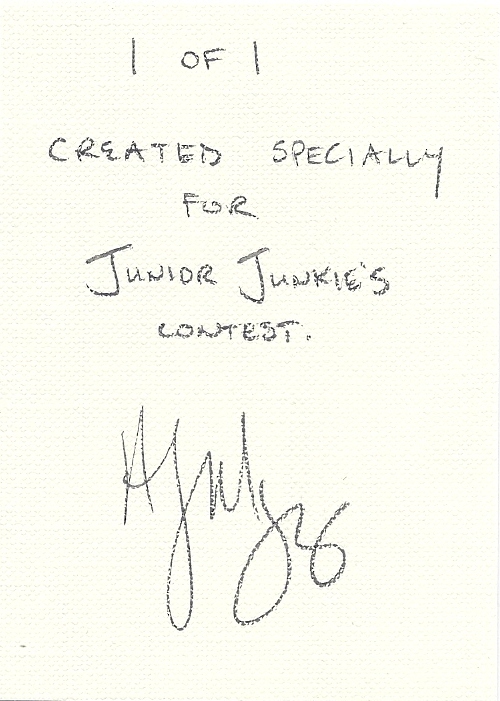 1 OF 1
CREATED SPECIALLY
FOR
JUNIOR JUNKIE'S
CONTEST.